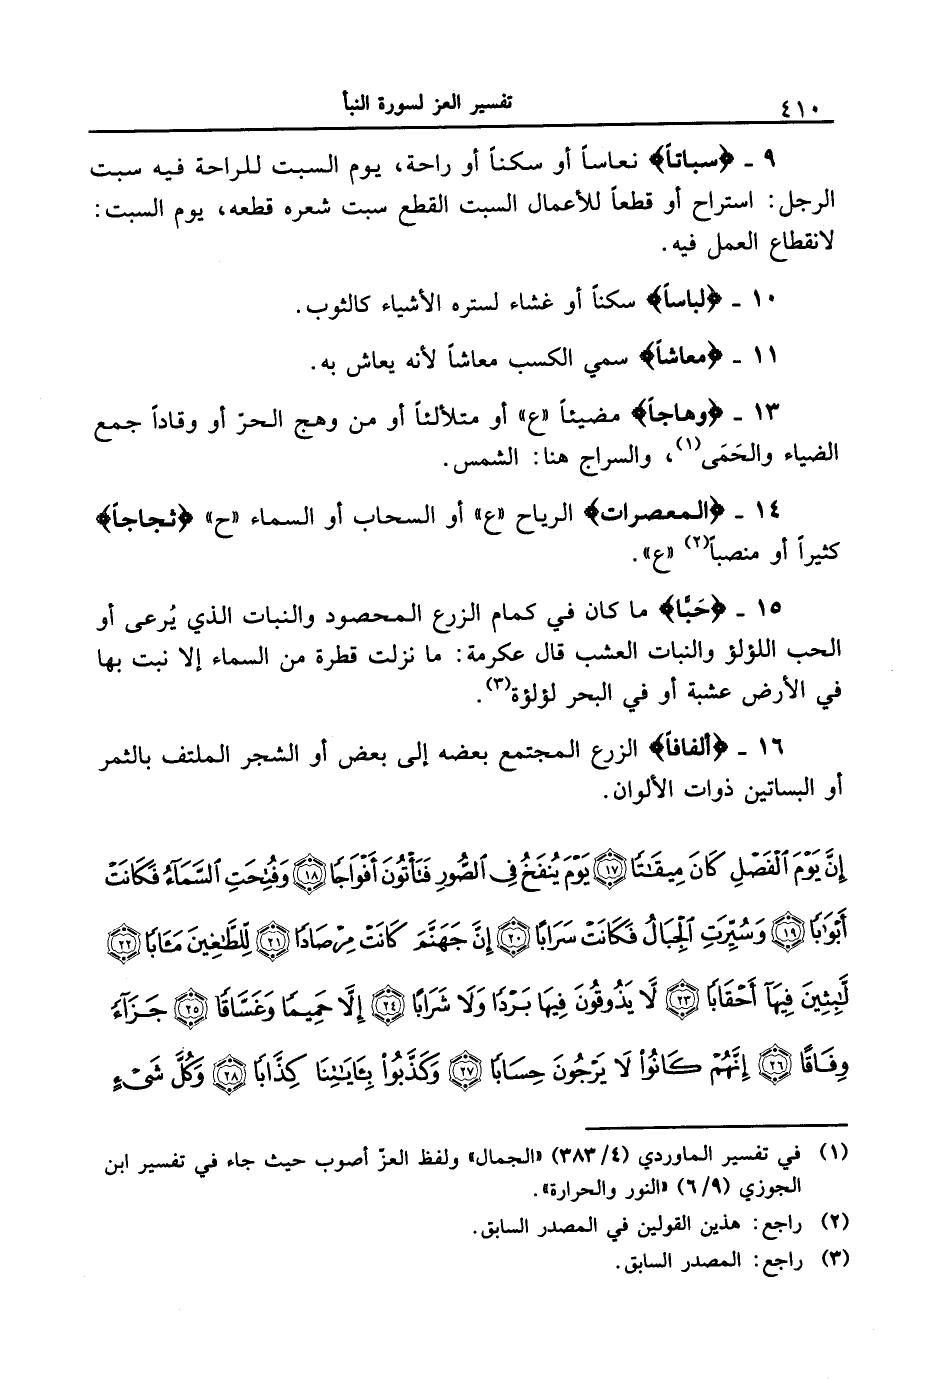 ٤١٠
تفسير العز لسورة النبأ
٩ ـ ﴿سباتاً﴾ نعاساً أو سكناً أو راحة، يوم السبت للراحة فيه سبت
الرجل: استراح أو قطعاً للأعمال السبت القطع سبت شعره قطعه، يوم السبت:
لانقطاع العمل فيه.
١٠ ـ ﴿لباساً﴾ سكناً أو غشاء لستره الأشياء كالثوب.
١١ ـ ﴿معاشاً﴾ سمي الكسب معاشاً لأنه يعاش به.
١٣ ـ ﴿وهاجاً﴾ مضيئاً «ع» أو متلألئاً أو من وهج الحرّ أو وقاداً جمع
الضياء والحَمَى(١)، والسراج هنا: الشمس.
١٤ ـ ﴿المعصرات﴾ الرياح «ع» أو السحاب أو السماء «ح» ﴿ثجاجاً﴾
كثيراً أو منصباً(٢) «ع».
١٥ ـ ﴿حَبًّا﴾ ما كان في كمام الزرع المحصود والنبات الذي يُرعى أو
الحب اللؤلؤ والنبات العشب قال عكرمة: ما نزلت قطرة من السماء إلا نبت بها
في الأرض عشبة أو في البحر لؤلؤة(٣).
١٦ ـ ﴿ألفافاً﴾ الزرع المجتمع بعضه إلى بعض أو الشجر الملتف بالثمر
أو البساتين ذوات الألوان.
إِنَّ يَوْمَ ٱلْفَصْلِ كَانَ مِيقَٰتًا ١٧ يَوْمَ يُنفَخُ فِي ٱلصُّورِ فَتَأْتُونَ أَفْوَاجًا ١٨ وَفُتِحَتِ ٱلسَّمَآءُ فَكَانَتْ
أَبْوَٰبًا ١٩ وَسُيِّرَتِ ٱلْجِبَالُ فَكَانَتْ سَرَابًا ٢٠ إِنَّ جَهَنَّمَ كَانَتْ مِرْصَادًا ٢١ لِّلطَّٰغِينَ مَـَٔابًا ٢٢
لَّٰبِثِينَ فِيهَآ أَحْقَابًا ٢٣ لَّا يَذُوقُونَ فِيهَا بَرْدًا وَلَا شَرَابًا ٢٤ إِلَّا حَمِيمًا وَغَسَّاقًا ٢٥ جَزَآءً
وِفَاقًا ٢٦ إِنَّهُمْ كَانُوا۟ لَا يَرْجُونَ حِسَابًا ٢٧ وَكَذَّبُوا۟ بِـَٔايَٰتِنَا كِذَّابًا ٢٨ وَكُلَّ شَىْءٍ
(١) في تفسير الماوردي (٣٨٣/٤) «الجمال» ولفظ العزّ أصوب حيث جاء في تفسير ابن
الجوزي (٦/٩) «النور والحرارة».
(٢) راجع: هذين القولين في المصدر السابق.
(٣) راجع: المصدر السابق.